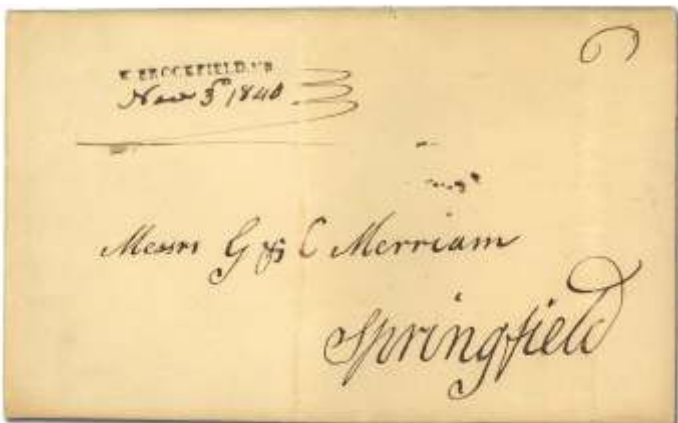 6
W. BROOKFIELD. MS
Nov 3d 1840
Messrs G & C Merriam
Springfield